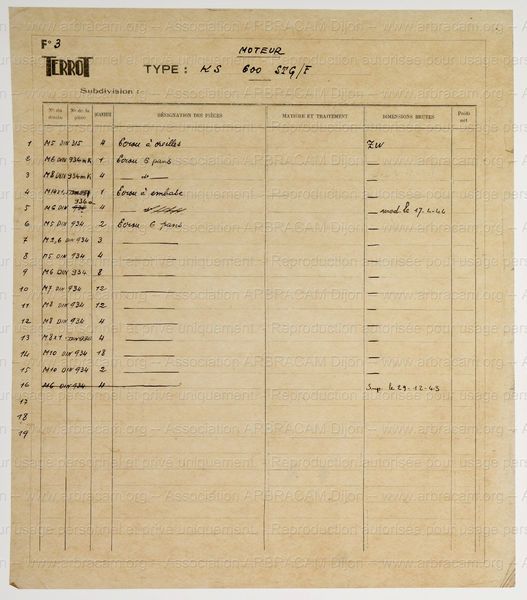 F° 3
MOTEUR
TERROT
TYPE : KS 600 STG/F
Subdivision :
N° du dessin N° de la pièce NOMBRE DÉSIGNATION DES PIÈCES MATIÈRE ET TRAITEMENT DIMENSIONS BRUTES Poids net
1 M5 DIN 315 4 Ecrou à oreilles ZW
2 M6 DIN 934 mK 1 Ecrou 6 pans —
3 M8 DIN 934 mK 4 — " — —
4 1 Ecrou à embase —
5 M6 DIN 934 4 — mod. le 17.4.44
6 M5 DIN 934 2 Ecrou 6 pans —
7 M2,6 DIN 934 3 —
8 M5 DIN 934 4 —
9 M6 DIN 934 8 —
10 M7 DIN 934 12 —
11 M8 DIN 934 12 —
12 M8 DIN 934 4 —
13 M8x1 4 —
14 M10 DIN 934 18 —
15 M10 DIN 934 2 —
16 M6 DIN 934 4 Sup. le 29-12-43
17
18
19
www.arbracam.org – Association ARBRACAM Dijon – www.arbracam.org
Reproduction autorisée pour usage personnel et privé uniquement